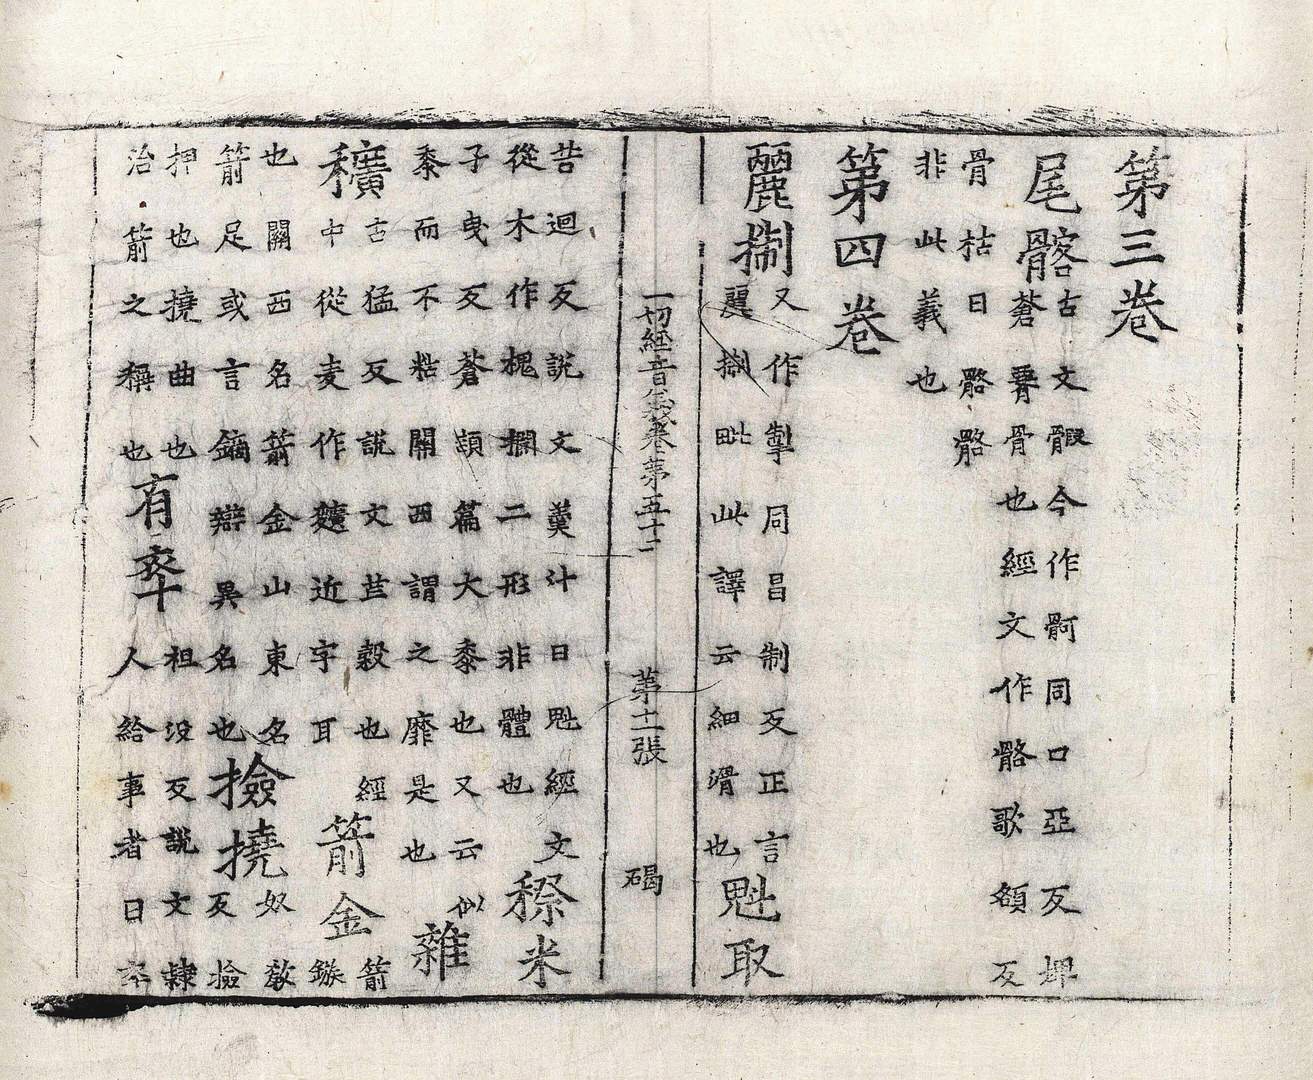 第三卷
尾髂
古文䯊今作䯊同口亞反埤
蒼䯒骨也經文作骼歌頟反
骨枯曰骼骼
非此義也
第四卷
麗㨖
又作掣同昌制反正言
麗㨖毗此譯云細滑也
魁取
一切經音義卷第五十二 第十一張 碣
苦迴反說文羹汁曰魁經文
從木作槐櫊二形非體也
穄米
子曳反蒼頡篇大黍也又云似
黍而不粘關西謂之穈是也
雜
穬
古猛反說文芒穀也經
中從麦作䵃近字耳
箭金
箭鏃
也關西名箭金山東名
箭足或言鏑辯異名也
撿撓
奴教反撿
押也撓曲也
治箭之稱也
有卒
祖没反說文隸
人給事者曰卒